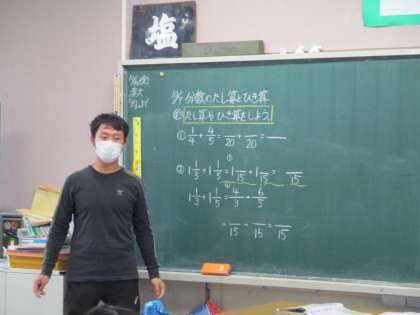 塩
分数のたし算とひき算
たし算やひき算をしよう
① 1/4 + 4/5 = /20 + /20 =
② 1 1/3 + 1 1/5 = 1 /15 + 1 /15 = /15
1 1/3 + 1 1/5 = 4/3 + 6/5
= /15 + /15 = /15